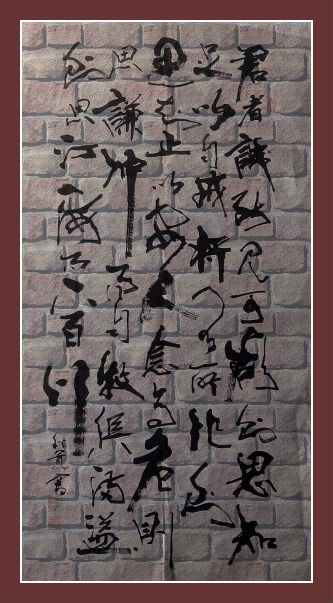 君者誠能見可欲則思知
足以自戒將有所作則
思知止以安人念高危則
思謙沖而自牧懼滿溢
則思江海下百川
書